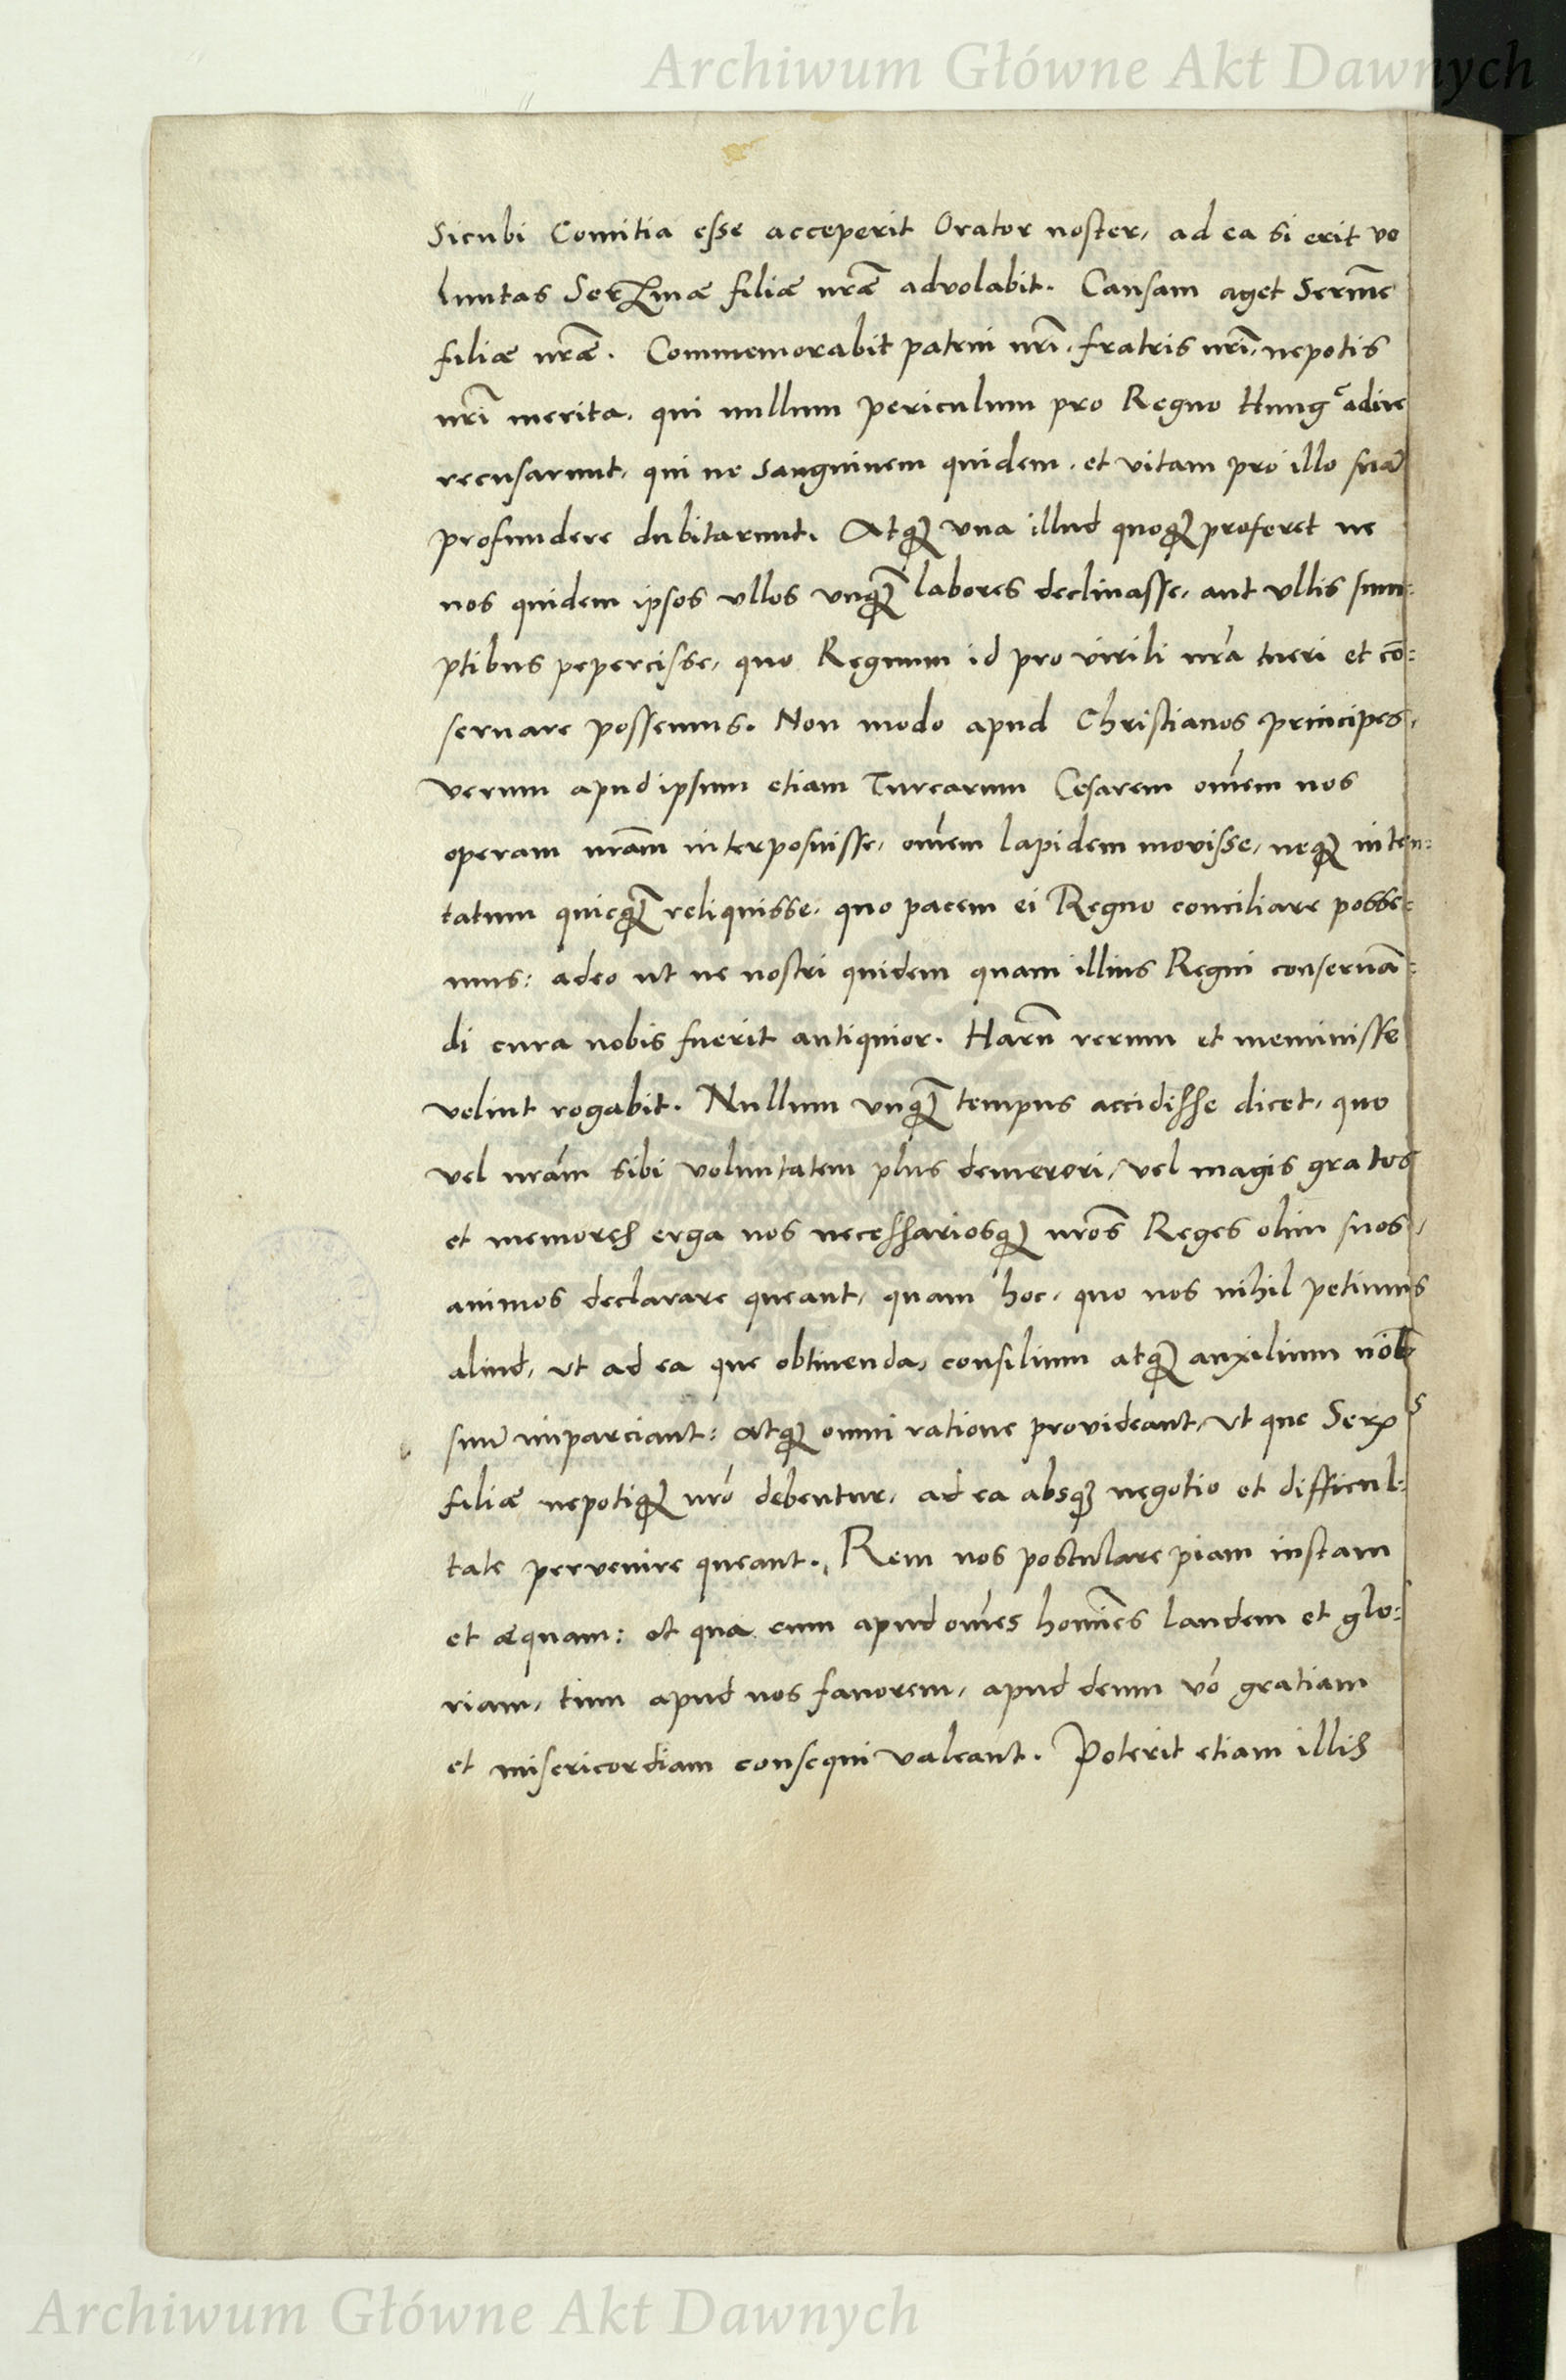 Archiwum Główne Akt Dawnych
Sicubi Comitia esse acceperit Orator noster, ad ea si erit vo
luntas Serenmæ filiæ nræ̃ advolabit. Causam aget Serm̃e
filiæ nræ̃. Commemorabit patrui nrĩ, fratris nrĩ, nepotis
nrĩ merita, qui nullum periculum pro Regno Hungᵉ adire
recusarunt, qui ne sanguinem quidem, et vitam pro illo suã
profundere dubitarunt. Atqꝫ una illud quoqꝫ proferet ne
nos quidem ipsos ullos unqꝫ̃ labores declinasse, aut ullis sum:
ptibus pepercisse, quo Regnum id pro virili nrã tueri et cõ:
seruare possemus. Non modo apud Christianos principes,
verum apud ipsum etiam Turcarum Cesarem om̃em nos
operam nrãm interposuisse, om̃em lapidem movisse, neqꝫ inten:
tatum quicqꝫ̃ reliquisse, quo pacem ei Regno conciliare posse:
mus: adeo ut ne nostri quidem quam illius Regni conseruã:
di cura nobis fuerit antiquior. Harũ rerum et meminisse
velint rogabit. Nullum unqꝫ̃ tempus accidisse dicet, quo
vel nrãm sibi voluntatem plus demereri, vel magis gratos
et memores erga nos necessariosqꝫ nrõs Reges olim suos,
animos declarare queant, quam hoc, quo nos nihil petimus
aliud, ut ad ea que obtinenda, consilium atqꝫ auxilium nõb
suũ imparciant: atqꝫ omni ratione provideant, ut que Serᵉ
filiæ nepotiqꝫ nrõ debentur, ad ea absqꝫ negotio et difficul:
tate pervenire queant. Rem nos postulare piam iustam
et æquam: et qua cum apud om̃es homĩes laudem et glo:
riam, tum apud nos fauorem, apud deum võ gratiam
et misericordiam consequi valeant. Poterit etiam illis
Archiwum Główne Akt Dawnych